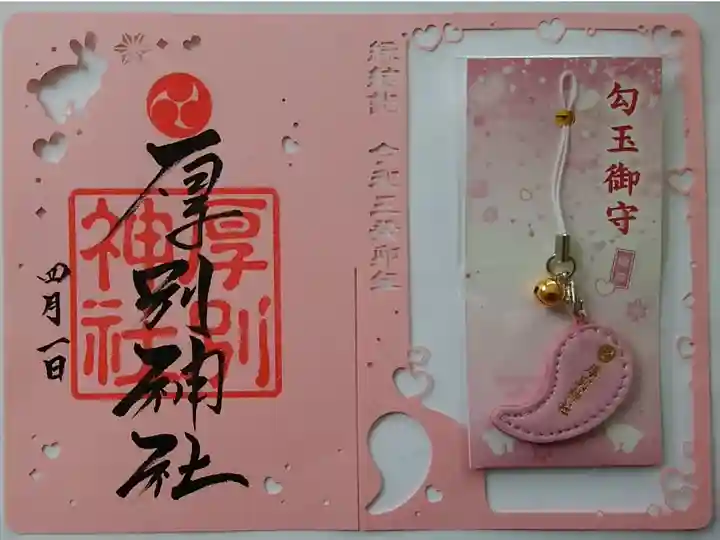 厚別神社
厚別
神社
四月一日
令和五癸卯年
勾玉御守
厚別神社